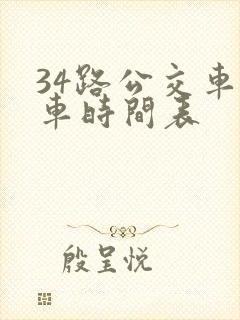 34路公交車
車時間表
殷呈悦